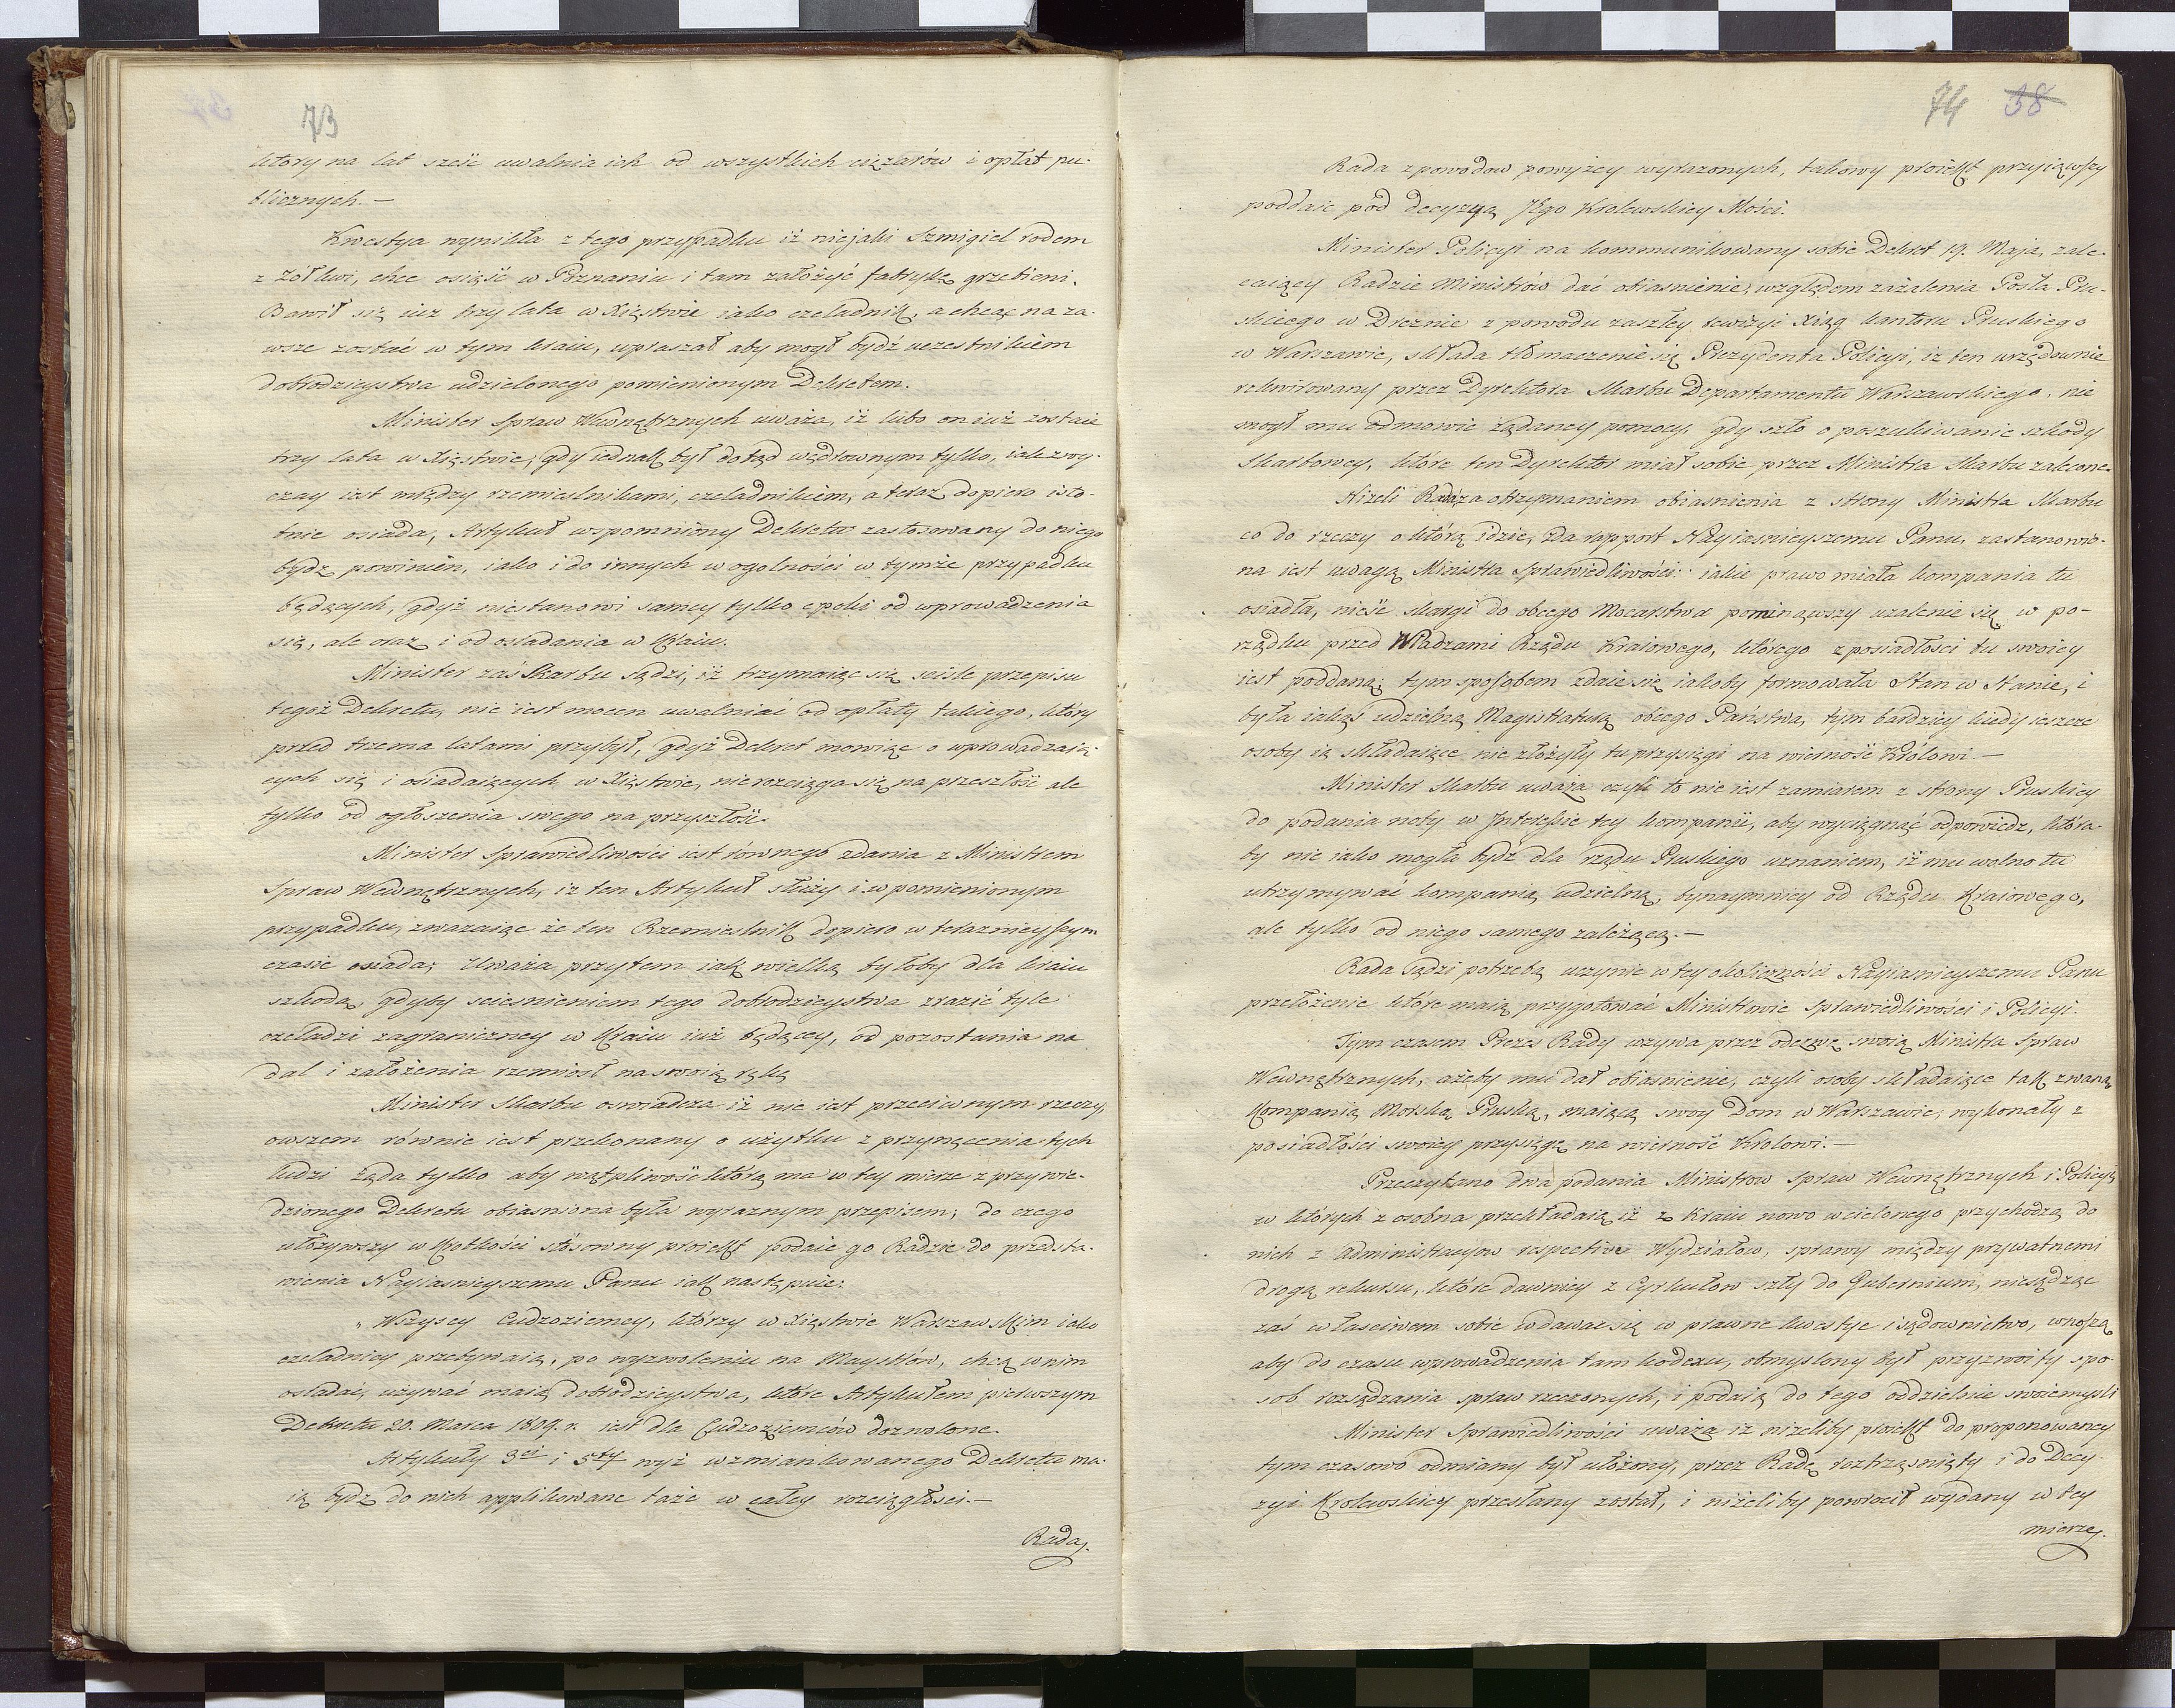 73
ktory na lat sześć uwalnia ich od wszystkich ciężarów i opłat pu-
blicznych. —
Kwestya wynikła z tego przypadku iż niejaki Szmigiel rodem
z Żółkwi, chce osiąść w Poznaniu i tam założyć fabrykę grzebieni.
Bawił się iuż trzy lata w Xięstwie iako czeladnik, a chcąc na za-
wsze zostać w tym kraiu, upraszał aby mogł bydź uczestnikiem
dobrodzieystwa udzielonego pomienionym Dekretem.
Minister Spraw Wewnętrznych uważa, iż lubo on iuż zostaie
trzy lata w Xięstwie, gdy iednak był dotąd wędrownym tylko, iak zwy-
czay iest między rzemieslnikami, czeladnikiem, a teraz dopiero isto-
tnie osiada, Artykuł wspomniony Dekretu zastosowany do niego
bydz powinien, iako i do innych w ogolności w tymże przypadku
będących, gdyż niestanowi samey tylko epoki od wprowadzenia
się, ale oraz i od osiadania w Kraiu.
Minister zaś Skarbu sądzi, iż trzymaiąc się scisle przepisu
tegoż Dekretu, nie iest mocen uwalniać od opłaty takiego, który
przed trzema latami przybył, gdyż Dekret mowiąc o wprowadzaią-
cych się i osiadaiących w Xięstwie, nierozciąga się na przeszłość ale
tylko od ogłoszenia swego na przyszłość.
Minister Sprawiedliwości iest równego zdania z Ministrem
Spraw Wewnętrznych, iz ten Artykuł służy i w pomienionym
przypadku, zwazaiąc że ten Rzemieslnik dopiero w teraznieyszym
czasie osiada; Uważa przytem iak wielką byłoby dla kraiu
szkodą, gdyby scieśnieniem tego dobrodzieystwa zrazić tyle
czeladzi zagraniczney w Kraiu iuż będącey, od pozostania na
dal i założenia rzemiosł na swoią rękę
Minister Skarbu oswiadcza iż nie iest przeciwnym rzeczy,
owszem równie iest przekonany o użytku z przynęcenia tych
ludzi żąda tylko aby wątpliwość którą ma w tey mierze z przywie-
dzionego Dekretu obiasniona była wyraznym przepisem; do czego
ułożywszy w krótkości stósowny proiekt podaie go Radzie do przedsta-
wienia Nayiasnieyszemu Panu iak następuie:
„Wszyscy Cudzoziemcy, którzy w Xięstwie Warszawskim iako
czeladnicy przebywaią, po wyzwoleniu na Maystrów, chcą w nim
osiadać, używać maią dobrodzieystwa, które Artykułem pierwszym
Dekretu 20. Marca 1809. r. iest dla Cudzoziemców dozwolone.
Artykuły 3ci i 5ty wyż wzmiankowanego Dekretu ma-
ią bydz do nich applikowane także w całey rozciągłości. —
Rada.
74 38
Rada z powodow powyżey wyrazonych, takowy proiekt przyiąwszy
poddaie pod decyzyą JEgo Krolewskiey Mości.
Minister Policyi na kommunikowany sobie Dekret 19. Maja, zale-
caiący Radzie Ministrów dać obiasnienie, względem zażalenia Posła Pru-
skiego w Dreznie z powodu zaszłey rewizyi Xiąg kantoru Pruskiego
w Warszawie, składa tłomaczenie się Prezydenta Policyi, iz ten urzędownie
rekwirowany przez Dyrektora Skarbu Departamentu Warszawskiego, nie
mogł mu odmowić żądaney pomocy, gdy szło o poszukiwanie szkody
skarbowey, które ten Dyrektor miał sobie przez Ministra Skarbu zalecone.
Niżeli Rada, za otrzymaniem obiasnienia z strony Ministra Skarbu
co do rzeczy o którą idzie, da rapport Nayiasnieyszemu Panu, zastanowio-
na iest uwagą Ministra Sprawiedliwości: iakie prawo miała kompania tu
osiadła, nieść skargi do obcego Mocarstwa pominąwszy uzalenie się w po-
rządku przed Władzami Rządu Kraiowego, którego z posiadłości tu swoiey
iest poddaną; tym sposobem zdaie się iakoby formowała Stan w Stanie, i
była iakąś udzielną Magistraturą obcego Państwa, tym bardziey kiedy ieszcze
osoby ią składaiące nie złożyły tu przysięgi na wierność Królowi. —
Minister Skarbu uważa czyli to nie iest zamiarem z strony Pruskiey
do podania noty w Interessie tey kompanii, aby wyciągnąć odpowiedz, która-
by nie iako mogła bydź dla rządu Pruskiego uznaniem, iż mu wolno tu
utrzymywać kompanią udzielną, bynaymniey od Rządu Kraiowego,
ale tylko od niego samego zależącą. —
Rada sądzi potrzebą uczynić w tey okoliczności Nayiasnieyszemu Panu
przełożenie które maią przygotować Ministrowie Sprawiedliwości i Policyi.
Tym czasem Prezes Rady wzywa przez odezwę swoią Ministra Spraw
Wewnętrznych, ażeby mu dał obiasnienie, czyli osoby składaiące tak zwaną
Kompanią Morską Pruską, maiącą swoy Dom w Warszawie, wykonały z
posiadłości swoiey przysięgę na wierność Krolowi. —
Przeczytano dwa podania Ministrow Spraw Wewnętrznych i Policyi,
w których z osobna przekładaią iż z Kraiu nowo wcielonego przychodzą do
nich z Administracyow respective Wydziałow, sprawy między prywatnemi
drogą rekursu, które dawniey z Cyrkułow szły do Gubernium, niesądząc
zaś właściwem sobie wdawać się w prawne kwestye i sądownictwo, wnoszą
aby do czasu wprowadzenia tam kodexu, obmyslony był przyzwoity spo-
sob rozsądzania spraw rzeczonych, i podaią do tego oddzielnie swoie mysli
Minister Sprawiedliwości uważa iż niżeliby proiekt do proponowaney
tymczasowo odmiany był ułożony, przez Radę roztrząsnięty i do Decy-
zyi Krolewskiey przesłany został, i niżeliby powrocił wydany w tey
mierze.